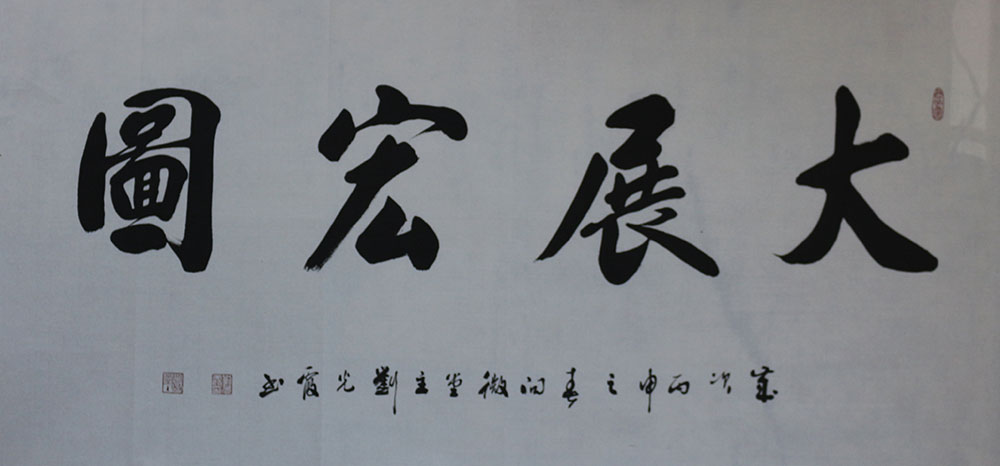 大展宏圖
歲次丙申之春问微堂主劉光霞书